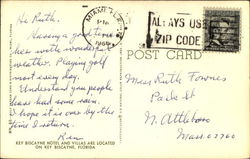 Hi Ruth,
Having a good time
here with wonderful
weather. Playing golf
most every day.
Understand you people
have had some rain.
hope it is over by the
time I return.
Ken
KEY BISCAYNE HOTEL AND VILLAS ARE LOCATED
ON KEY BISCAYNE, FLORIDA
MIAMI, FLA.
PM
ALWAYS USE
ZIP CODE
POST CARD
Miss Ruth Fownes
Park St
N. Attleboro
Mass. 02760